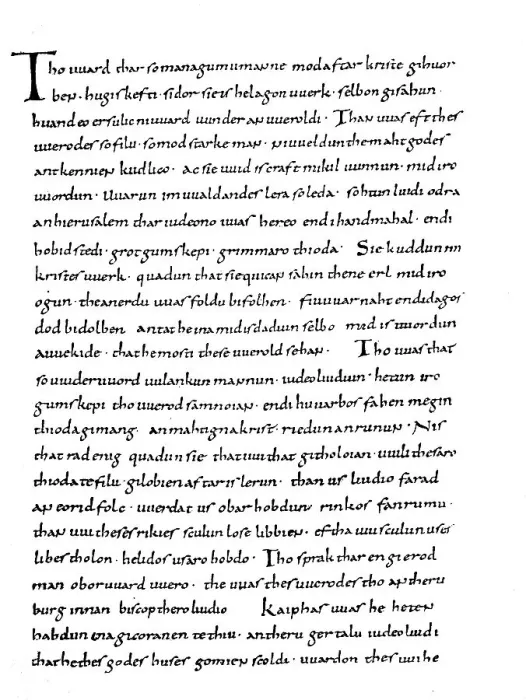 Tho uuard thar so managumu manne mod aftar kriste gihuor
ben · hugiskefti · sidor sie is helagon uuerk · selbon gisahun ·
huand eo er sulic ni uuard uunder an uueroldi · Than uuas eft thes
uuerodes so filu · so modstarke man · ni uueldun the maht godes
antkennien kudlico · ac sie uuid is craft mikil uunnun · mid iro
uuordun · Uuarun im uualdandes lera so leda · sohtun liudi odra
an hierusalem thar iudeono uuas hereo endi handmahal · endi
hobidstedi · grot gumskepi · grimmaro thioda · Sie kuddun im
kristes uuerk · quadun that sie quican sahin thene erl mid iro
ogun · the an erdu uuas foldu bifolhen · fiuuuar naht endi dagos
dod bidolben antat he ina mid is dadiun selbo mid is uuordun
auuekide · that he mosti these uuerold sehan · Tho uuas that
so uuideruuord uulankun mannun · iudeo liudiun · hetun iro
gumskepi tho uuerod samnoian · endi huuarbos fahen megin
thioda gimang · an mahtigna krist · riedun an runun · Nis
that rad enig quadun sie · that uui that githoloian · uuili thesaro
thioda te filu · gilobien aftar is lerun · than us liudio farad
an eorid folc · uuerdat us obar hobdun rinkos fan rumu ·
than uui theses rikies sculun lose libbien · eftha uui sculun uses
libes tholon · helidos usaro hobdo · Tho sprak thar en gierod
man obor uuard uuero · the uuas thes uuerodes tho an theru
burg innan biscop thero liudio Kaiphas uuas he heten
habdun ina gicoranen te thiu · an theru gertalu iudeo liudi
that he thes godes huses gomien scoldi · uuardon thes uuihe